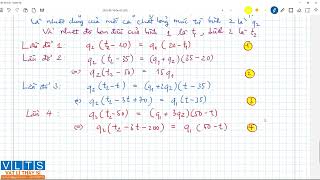 là nhiệt dung của mỗi ca chất lỏng múc từ bình 2 là q2
Và nhiệt độ ban đầu của bình 1 là t1 bình 2 là t2
Lần đổ 1: q2(t2-20) = q1(20-t1)
Lần đổ 2: q2(t2-35) = (q1+q2)(35-20)
⇔ q2(t2-50) = 15q1 ②
Lần đổ 3: q2(t2-t) = (q1+2q2)(t-35)
⇔ q2(t2-3t+70) = q1(t-35) ③
Lần 4: q2(t2-50) = (q1+3q2)(50-t)
⇔ q2(t2-3t-200) = q1(50-t) ④
VLTS
VẬT LÍ THẦY SĨ